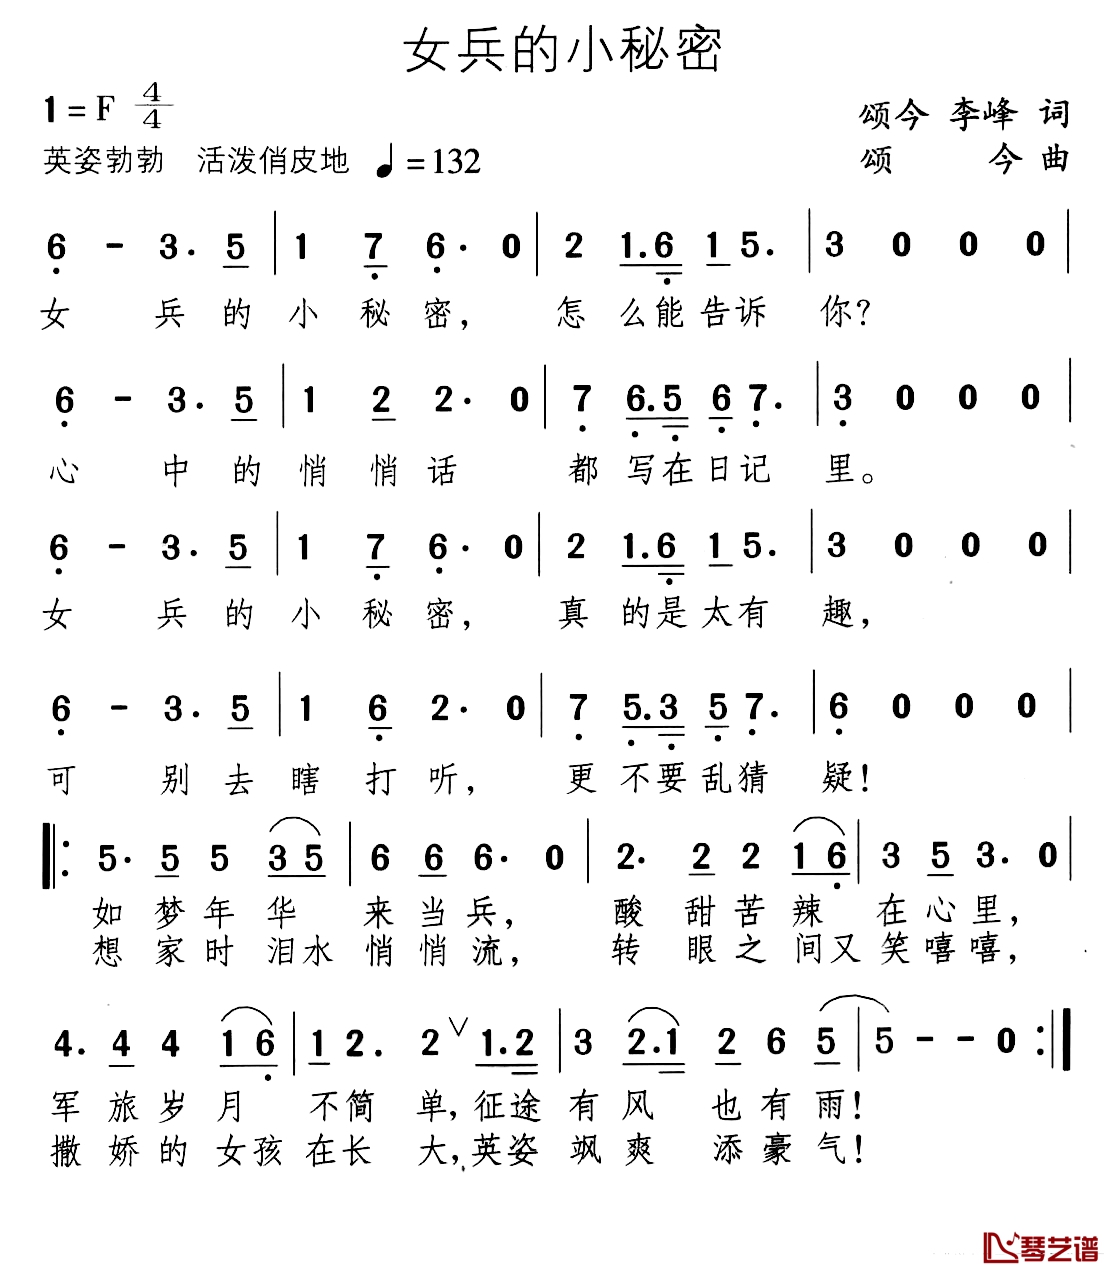 女兵的小秘密
1=F 4/4
颂今 李峰 词
英姿勃勃 活泼俏皮地 ♩=132
颂 今 曲
6 - 3. 5 | 1 7 6. 0 | 2 1.6 1 5. | 3 0 0 0 |
女 兵 的 小 秘 密， 怎 么 能 告 诉 你？
6 - 3. 5 | 1 2 2. 0 | 7 6.5 6 7. | 3 0 0 0 |
心 中 的 悄 悄 话 都 写 在 日 记 里。
6 - 3. 5 | 1 7 6. 0 | 2 1.6 1 5. | 3 0 0 0 |
女 兵 的 小 秘 密， 真 的 是 太 有 趣，
6 - 3. 5 | 1 6 2. 0 | 7 5.3 5 7. | 6 0 0 0 |
可 别 去 瞎 打 听， 更 不 要 乱 猜 疑！
‖: 5. 5 5 3 5 | 6 6 6. 0 | 2. 2 2 1 6 | 3 5 3. 0 |
如 梦 年 华 来 当 兵， 酸 甜 苦 辣 在 心 里，
想 家 时 泪 水 悄 悄 流， 转 眼 之 间 又 笑 嘻 嘻，
4. 4 4 1 6 | 1 2. 2 ∨ 1.2 | 3 2.1 2 6 5 | 5 - - 0 :‖
军 旅 岁 月 不 简 单，征 途 有 风 也 有 雨！
撒 娇 的 女 孩 在 长 大，英 姿 飒 爽 添 豪 气！
琴艺谱